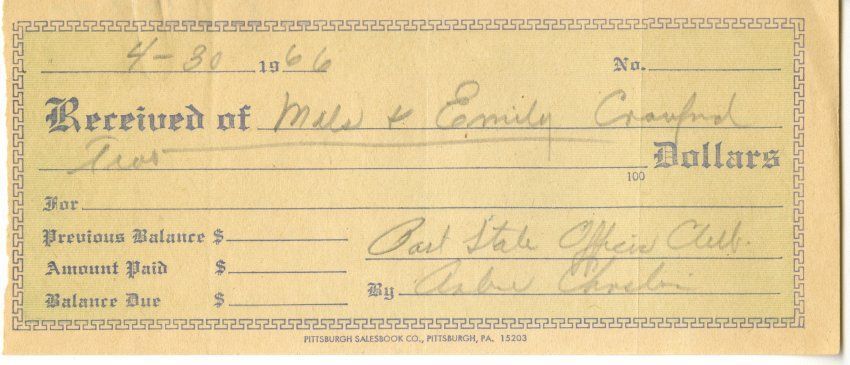 4-30 1966 No.
Received of Mals & Emily Crawford
Two 100 Dollars
For
Previous Balance $
Past State Officer Club.
Amount Paid $
Balance Due $
By
PITTSBURGH SALESBOOK CO., PITTSBURGH, PA. 15203